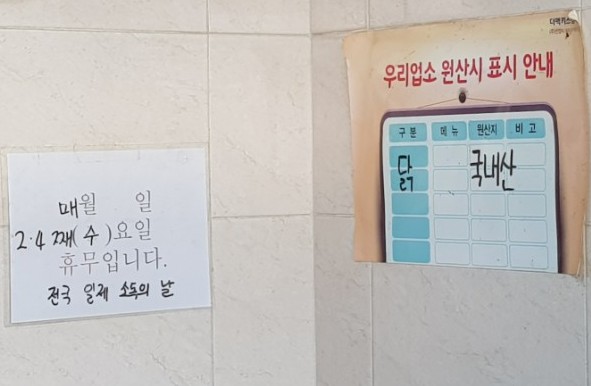 매월 일
2·4째(수)요일
휴무입니다.
전국 일제 소독의 날
우리업소 원산시 표시 안내
구분 메뉴 원산지 비고
닭 국내산